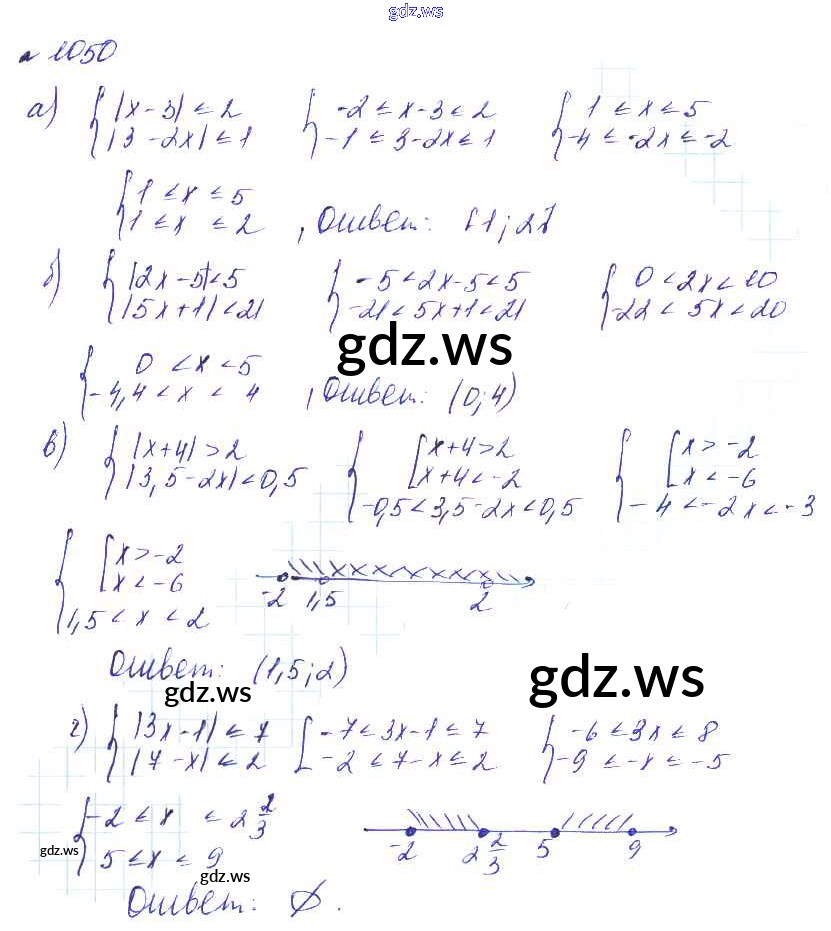 gdz.ws
№ 1050
а) { |x-3| ≤ 2 { -2 ≤ x-3 ≤ 2 { 1 ≤ x ≤ 5
|3-2x| ≤ 1 -1 ≤ 3-2x ≤ 1 -4 ≤ -2x ≤ -2
{ 1 ≤ x ≤ 5
1 ≤ x ≤ 2 , Ответ: [1; 2]
б) { |2x-5| < 5 { -5 < 2x-5 < 5 { 0 < 2x < 10
|5x+1| < 21 -21 < 5x+1 < 21 -22 < 5x < 20
gdz.ws
{ 0 < x < 5
-4,4 < x < 4 , Ответ: (0; 4)
в) { |x+4| > 2 { [ x+4 > 2 { [ x > -2
|3,5-2x| < 0,5 x+4 < -2 x < -6
-0,5 < 3,5-2x < 0,5 -4 < -2x < -3
{ [ x > -2
x < -6
1,5 < x < 2
-2 1,5 2
Ответ: (1,5; 2)
gdz.ws gdz.ws
г) { |3x-1| ≤ 7 [ -7 ≤ 3x-1 ≤ 7 { -6 ≤ 3x ≤ 8
|7-x| ≤ 2 -2 ≤ 7-x ≤ 2 -9 ≤ -x ≤ -5
{ -2 ≤ x ≤ 2 2/3
5 ≤ x ≤ 9
-2 2 2/3 5 9
gdz.ws
gdz.ws
Ответ: ∅.